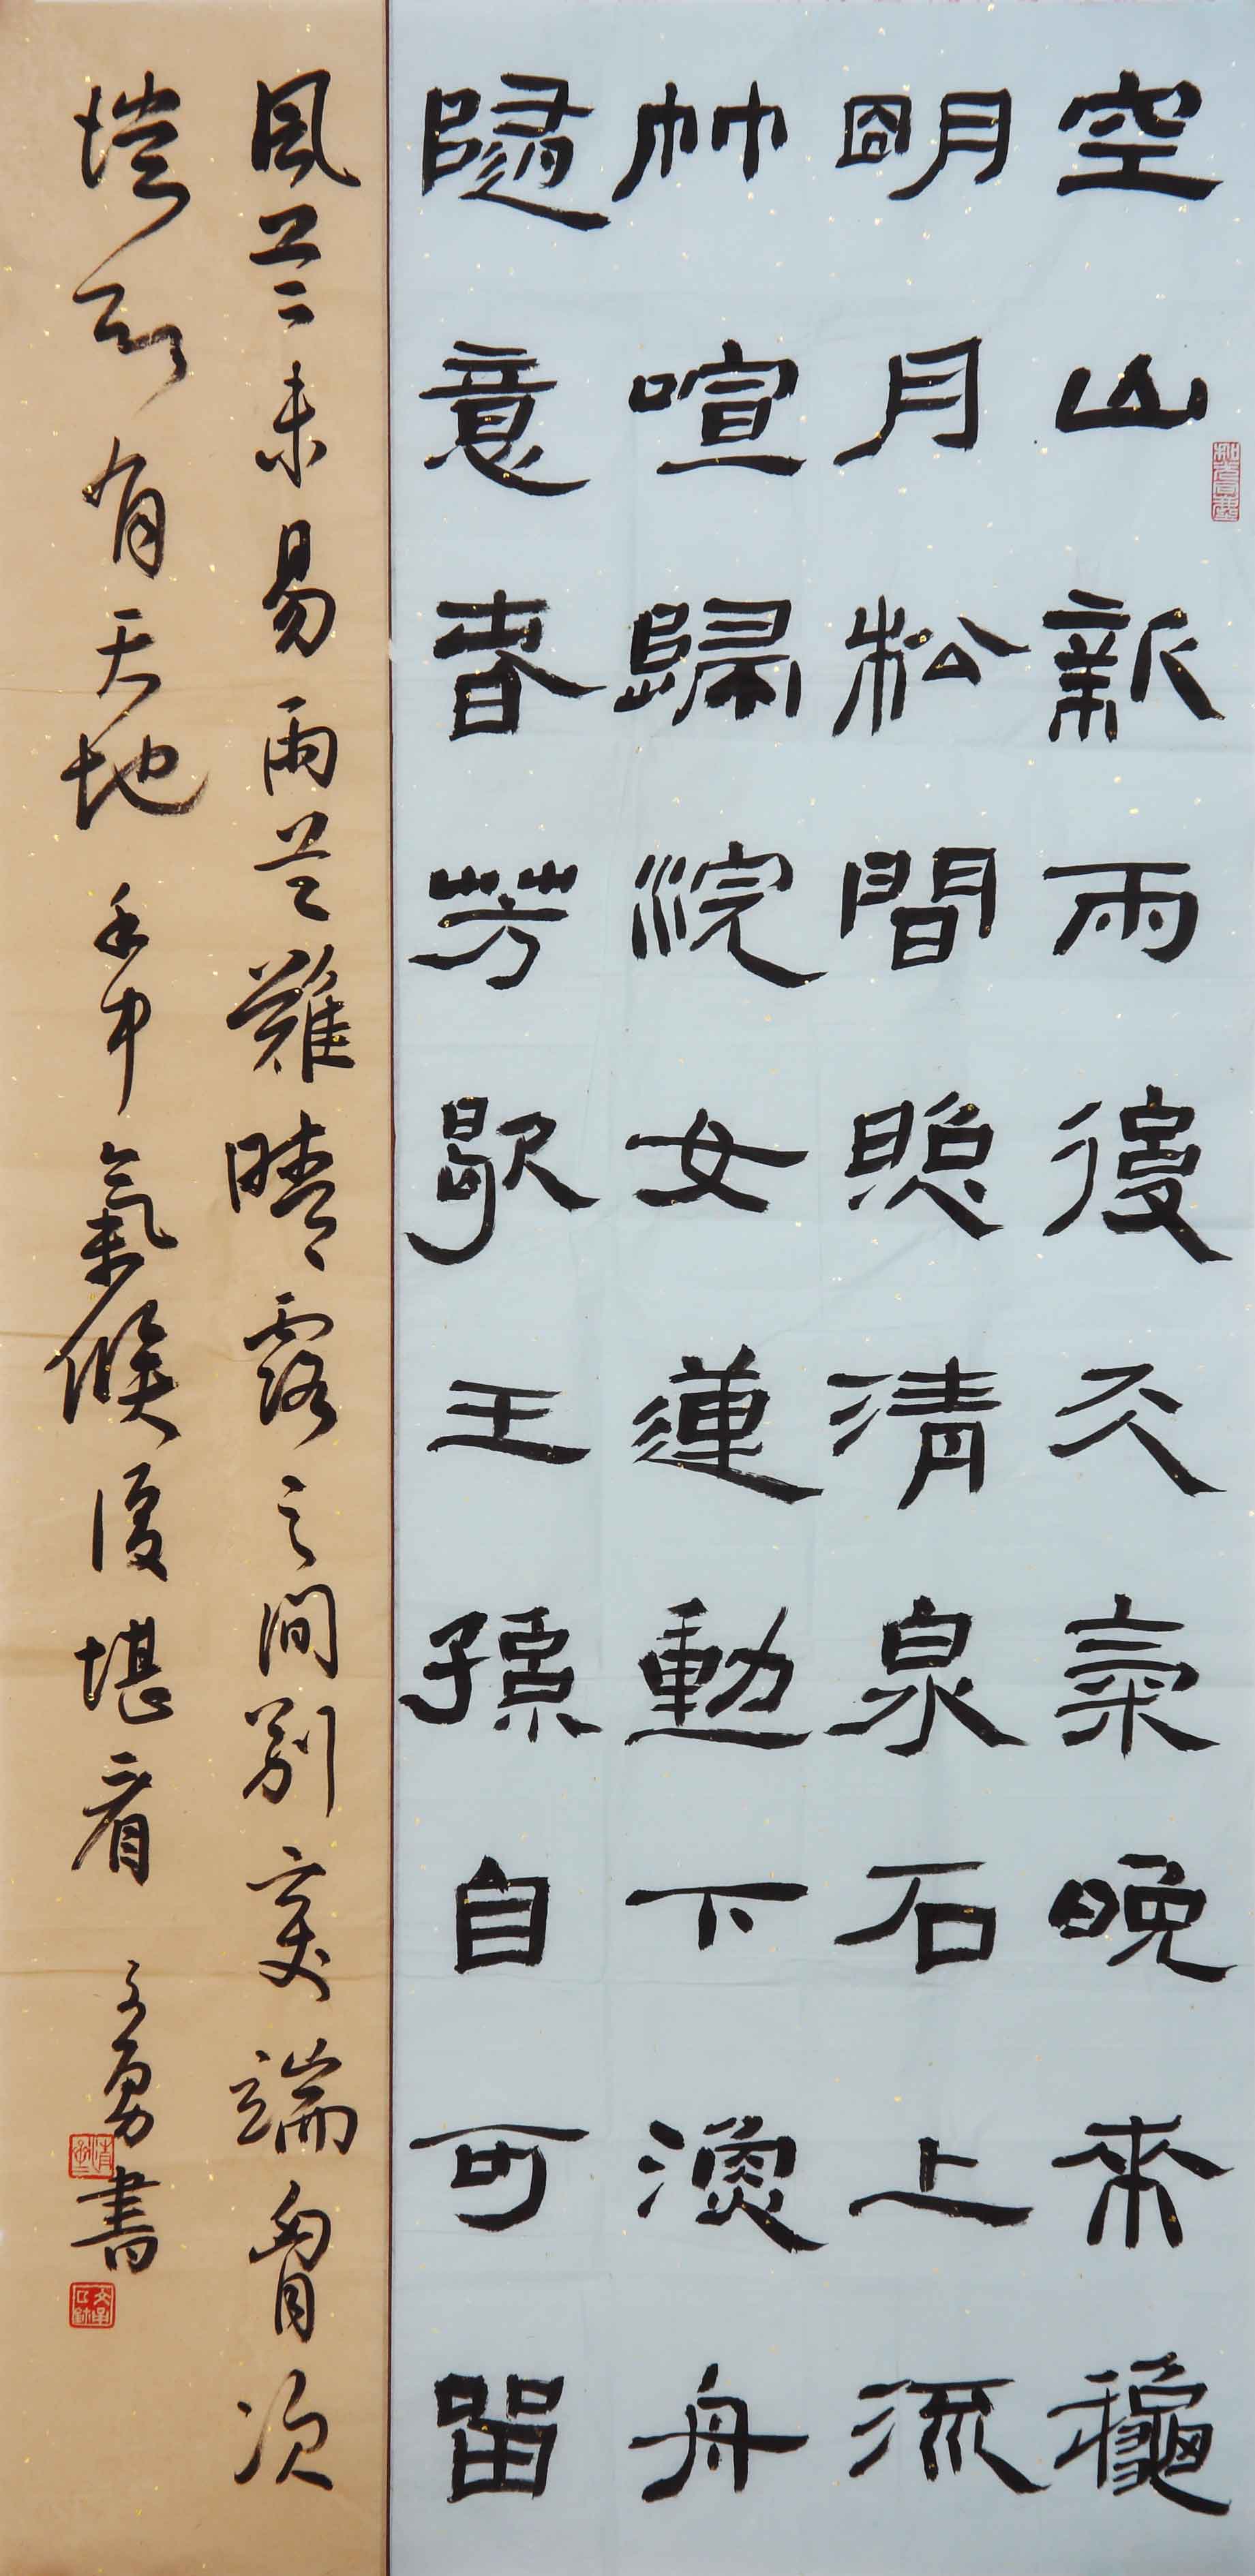 空山新雨後天氣晚來龝
明月松間照清泉石上流
竹喧歸浣女蓮動下漁舟
隨意春芳歇王孫自可留
風兰未易雨兰難晴露之間別變端胷次
有天地手中氣候後堪看 文勇書